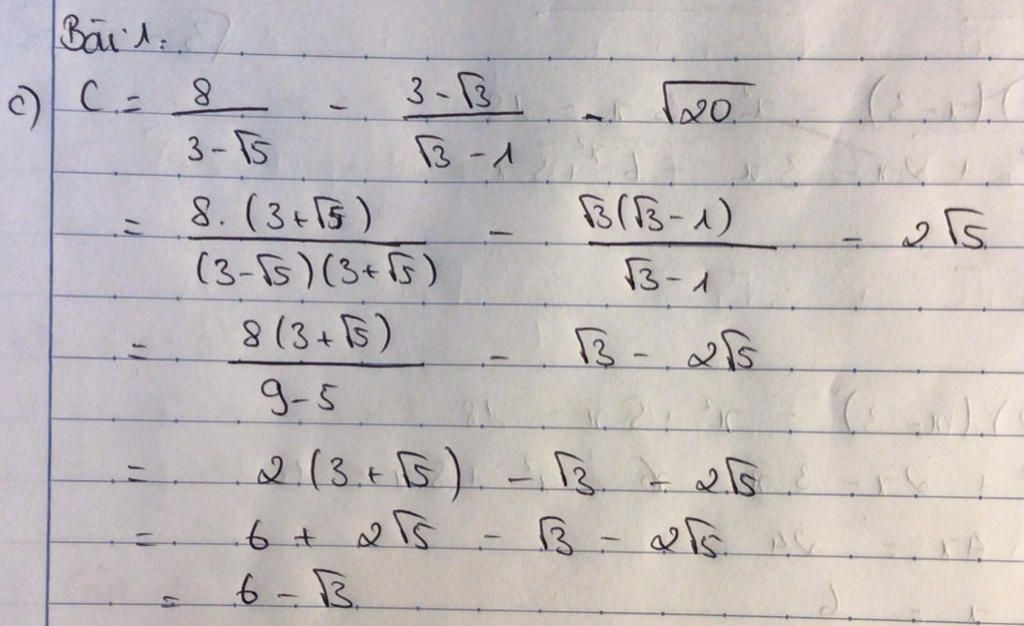 Bài 1:
c) C = 8/(3-√5) - (3-√3)/(√3-1) - √20
= 8.(3+√5)/((3-√5)(3+√5)) - √3(√3-1)/(√3-1) - 2√5
= 8(3+√5)/(9-5) - √3 - 2√5
= 2(3+√5) - √3 - 2√5
= 6 + 2√5 - √3 - 2√5
= 6 - √3